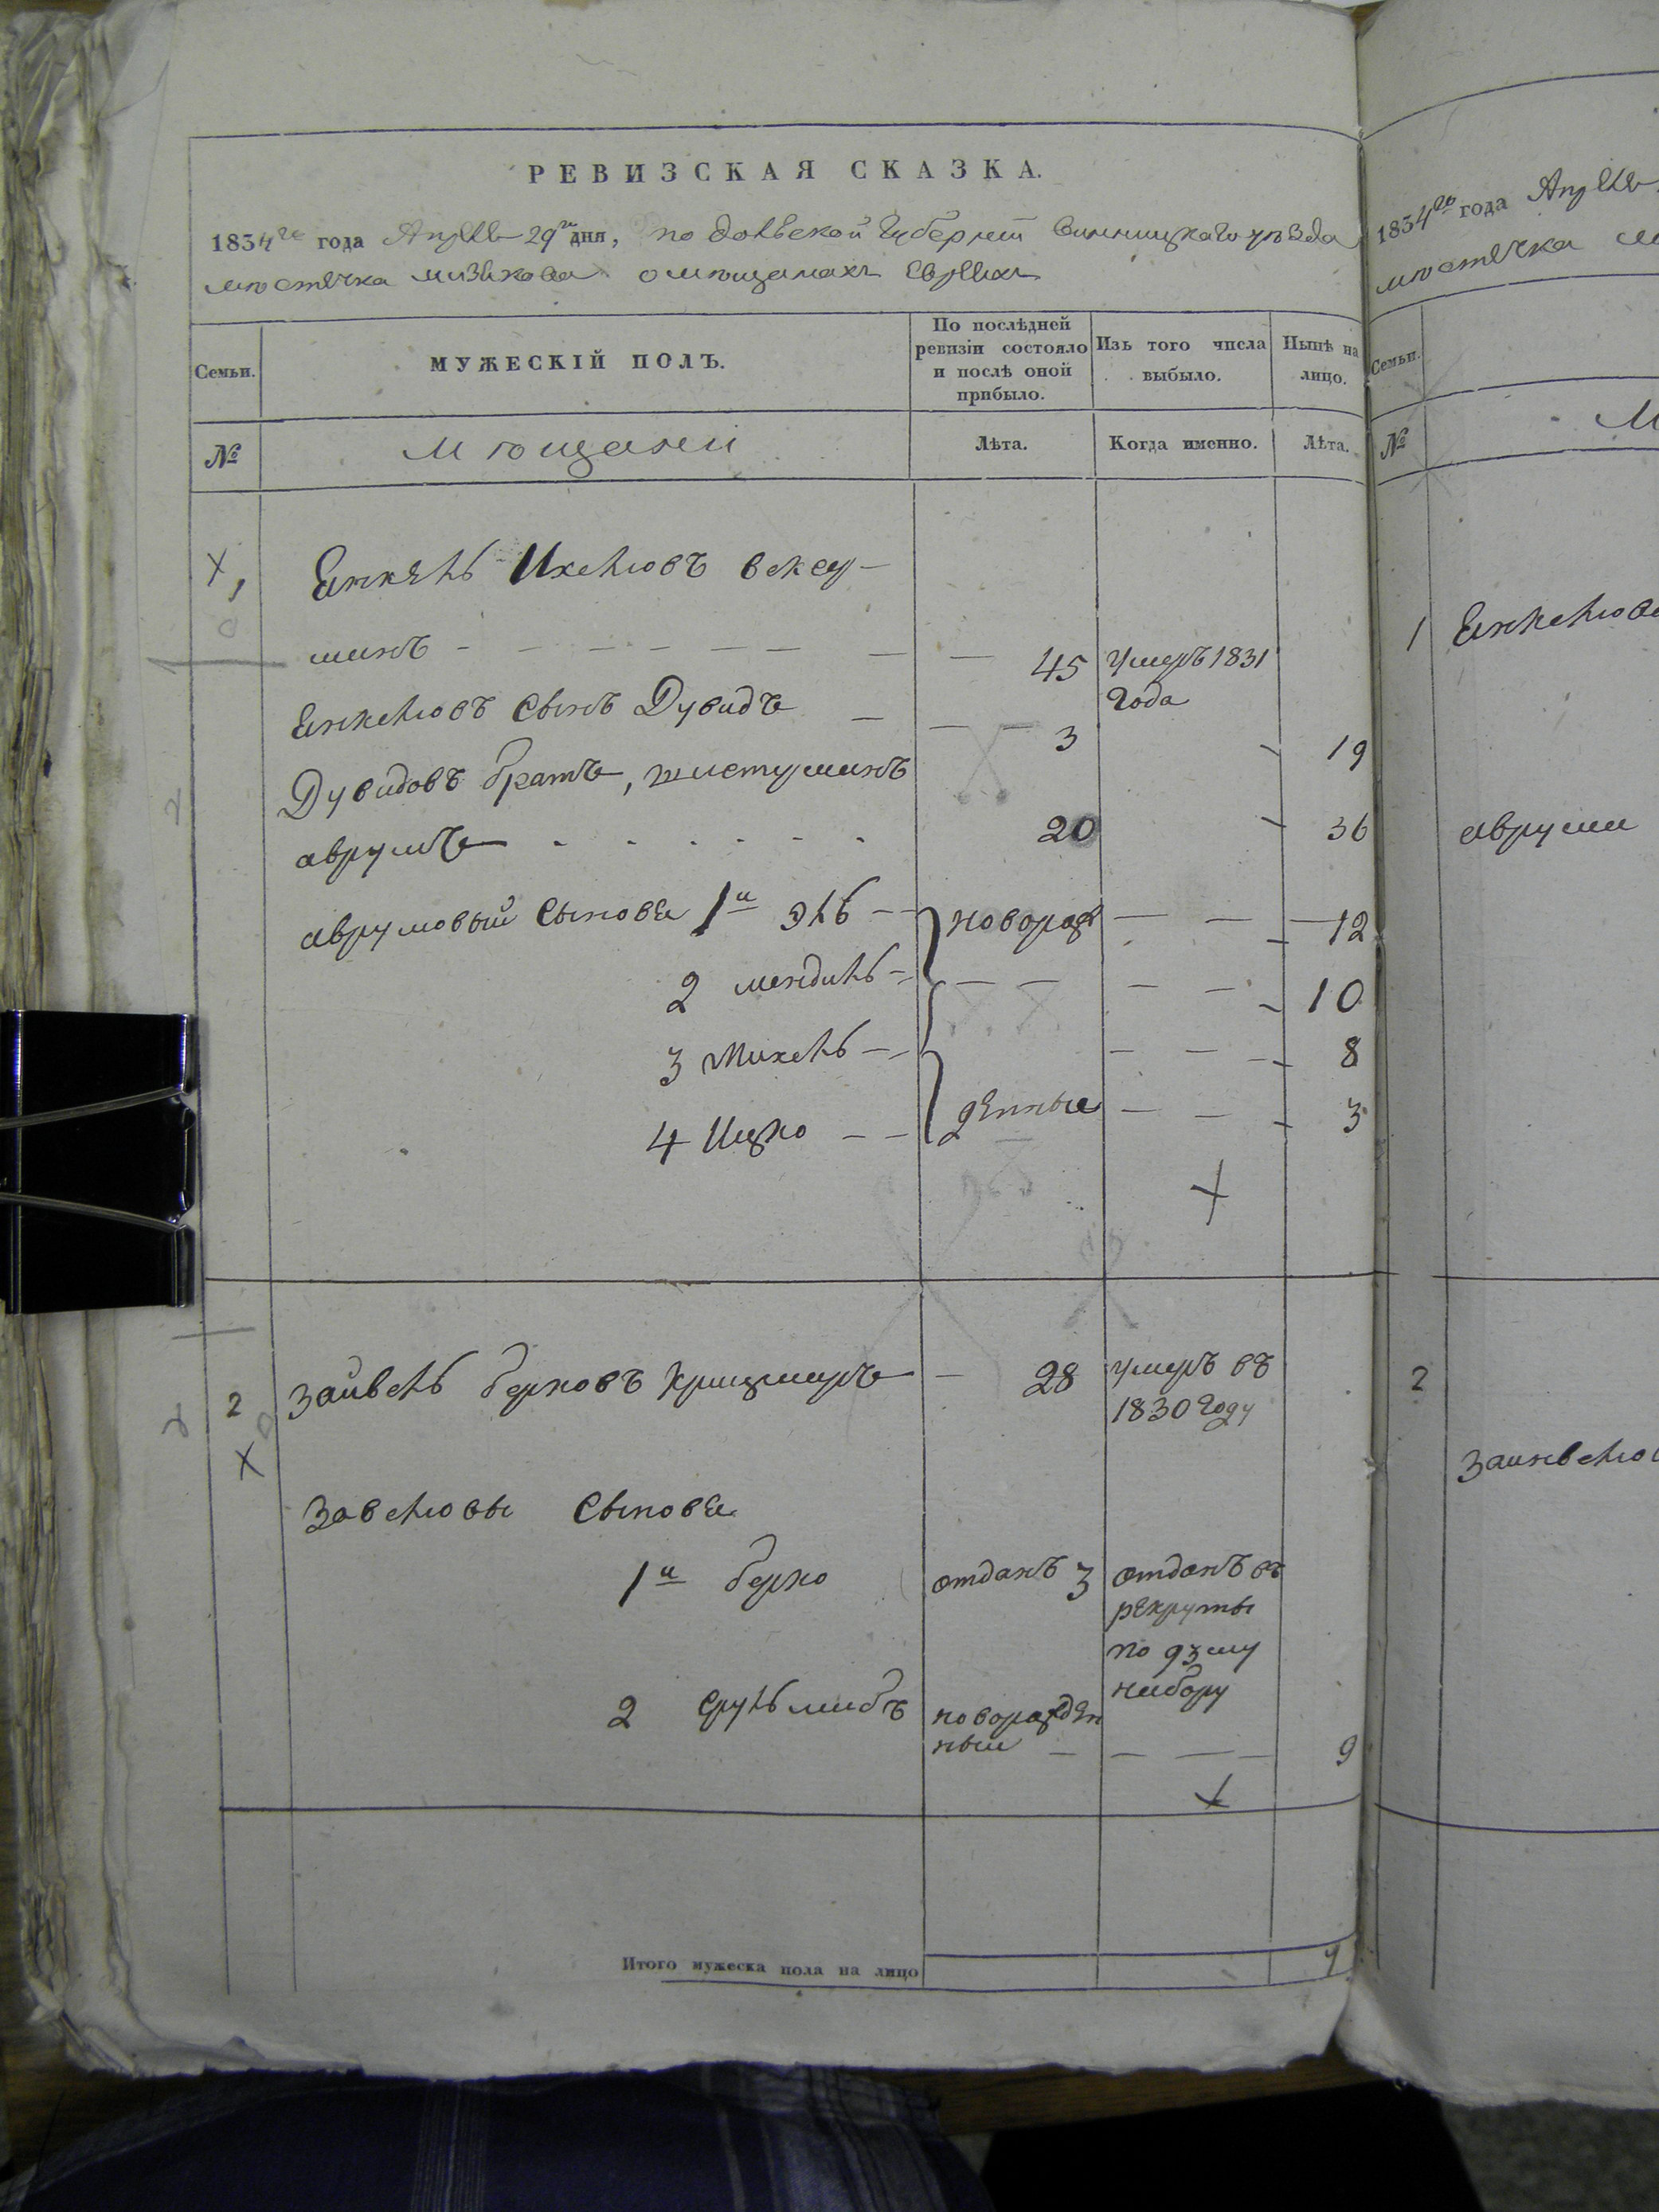 РЕВИЗСКАЯ СКАЗКА.
1834го года Апреля 29го дня, подольской Губернии Винницкаго уезда
местечка мизякова о мещанахъ Евреяхъ
Семьи.
МУЖЕСКІЙ ПОЛЪ.
По послѣдней ревизіи состояло и послѣ оной прибыло.
Изъ того числа выбыло.
Нынѣ на лицо.
№
Мещани
Лѣта.
Когда именно.
Лѣта.
1
Енкель Ихелювъ вексу-
минъ 45 умеръ 1831
года
Енкелювъ сынъ Дувидъ 3 19
Дувидовъ братъ,
аврумъ 20 36
аврумовый сыновя 1й эль новорож 12
2 мендиль 10
3 Михель 8
4 Ицко денные 3
2 Зайвель берковъ крицмеръ 28 умеръ въ
1830 году
Завелювы сыновя
1й берко отданъ 3 отданъ въ
рекруты
по 93му
набору
2 срульлибъ новорожден
ныи 9
Итого мужеска пола на лицо 7
1834го года Апреля
местечка
Семьи.
№
М
1 Енкелюв
авруми
2
Заинвелю